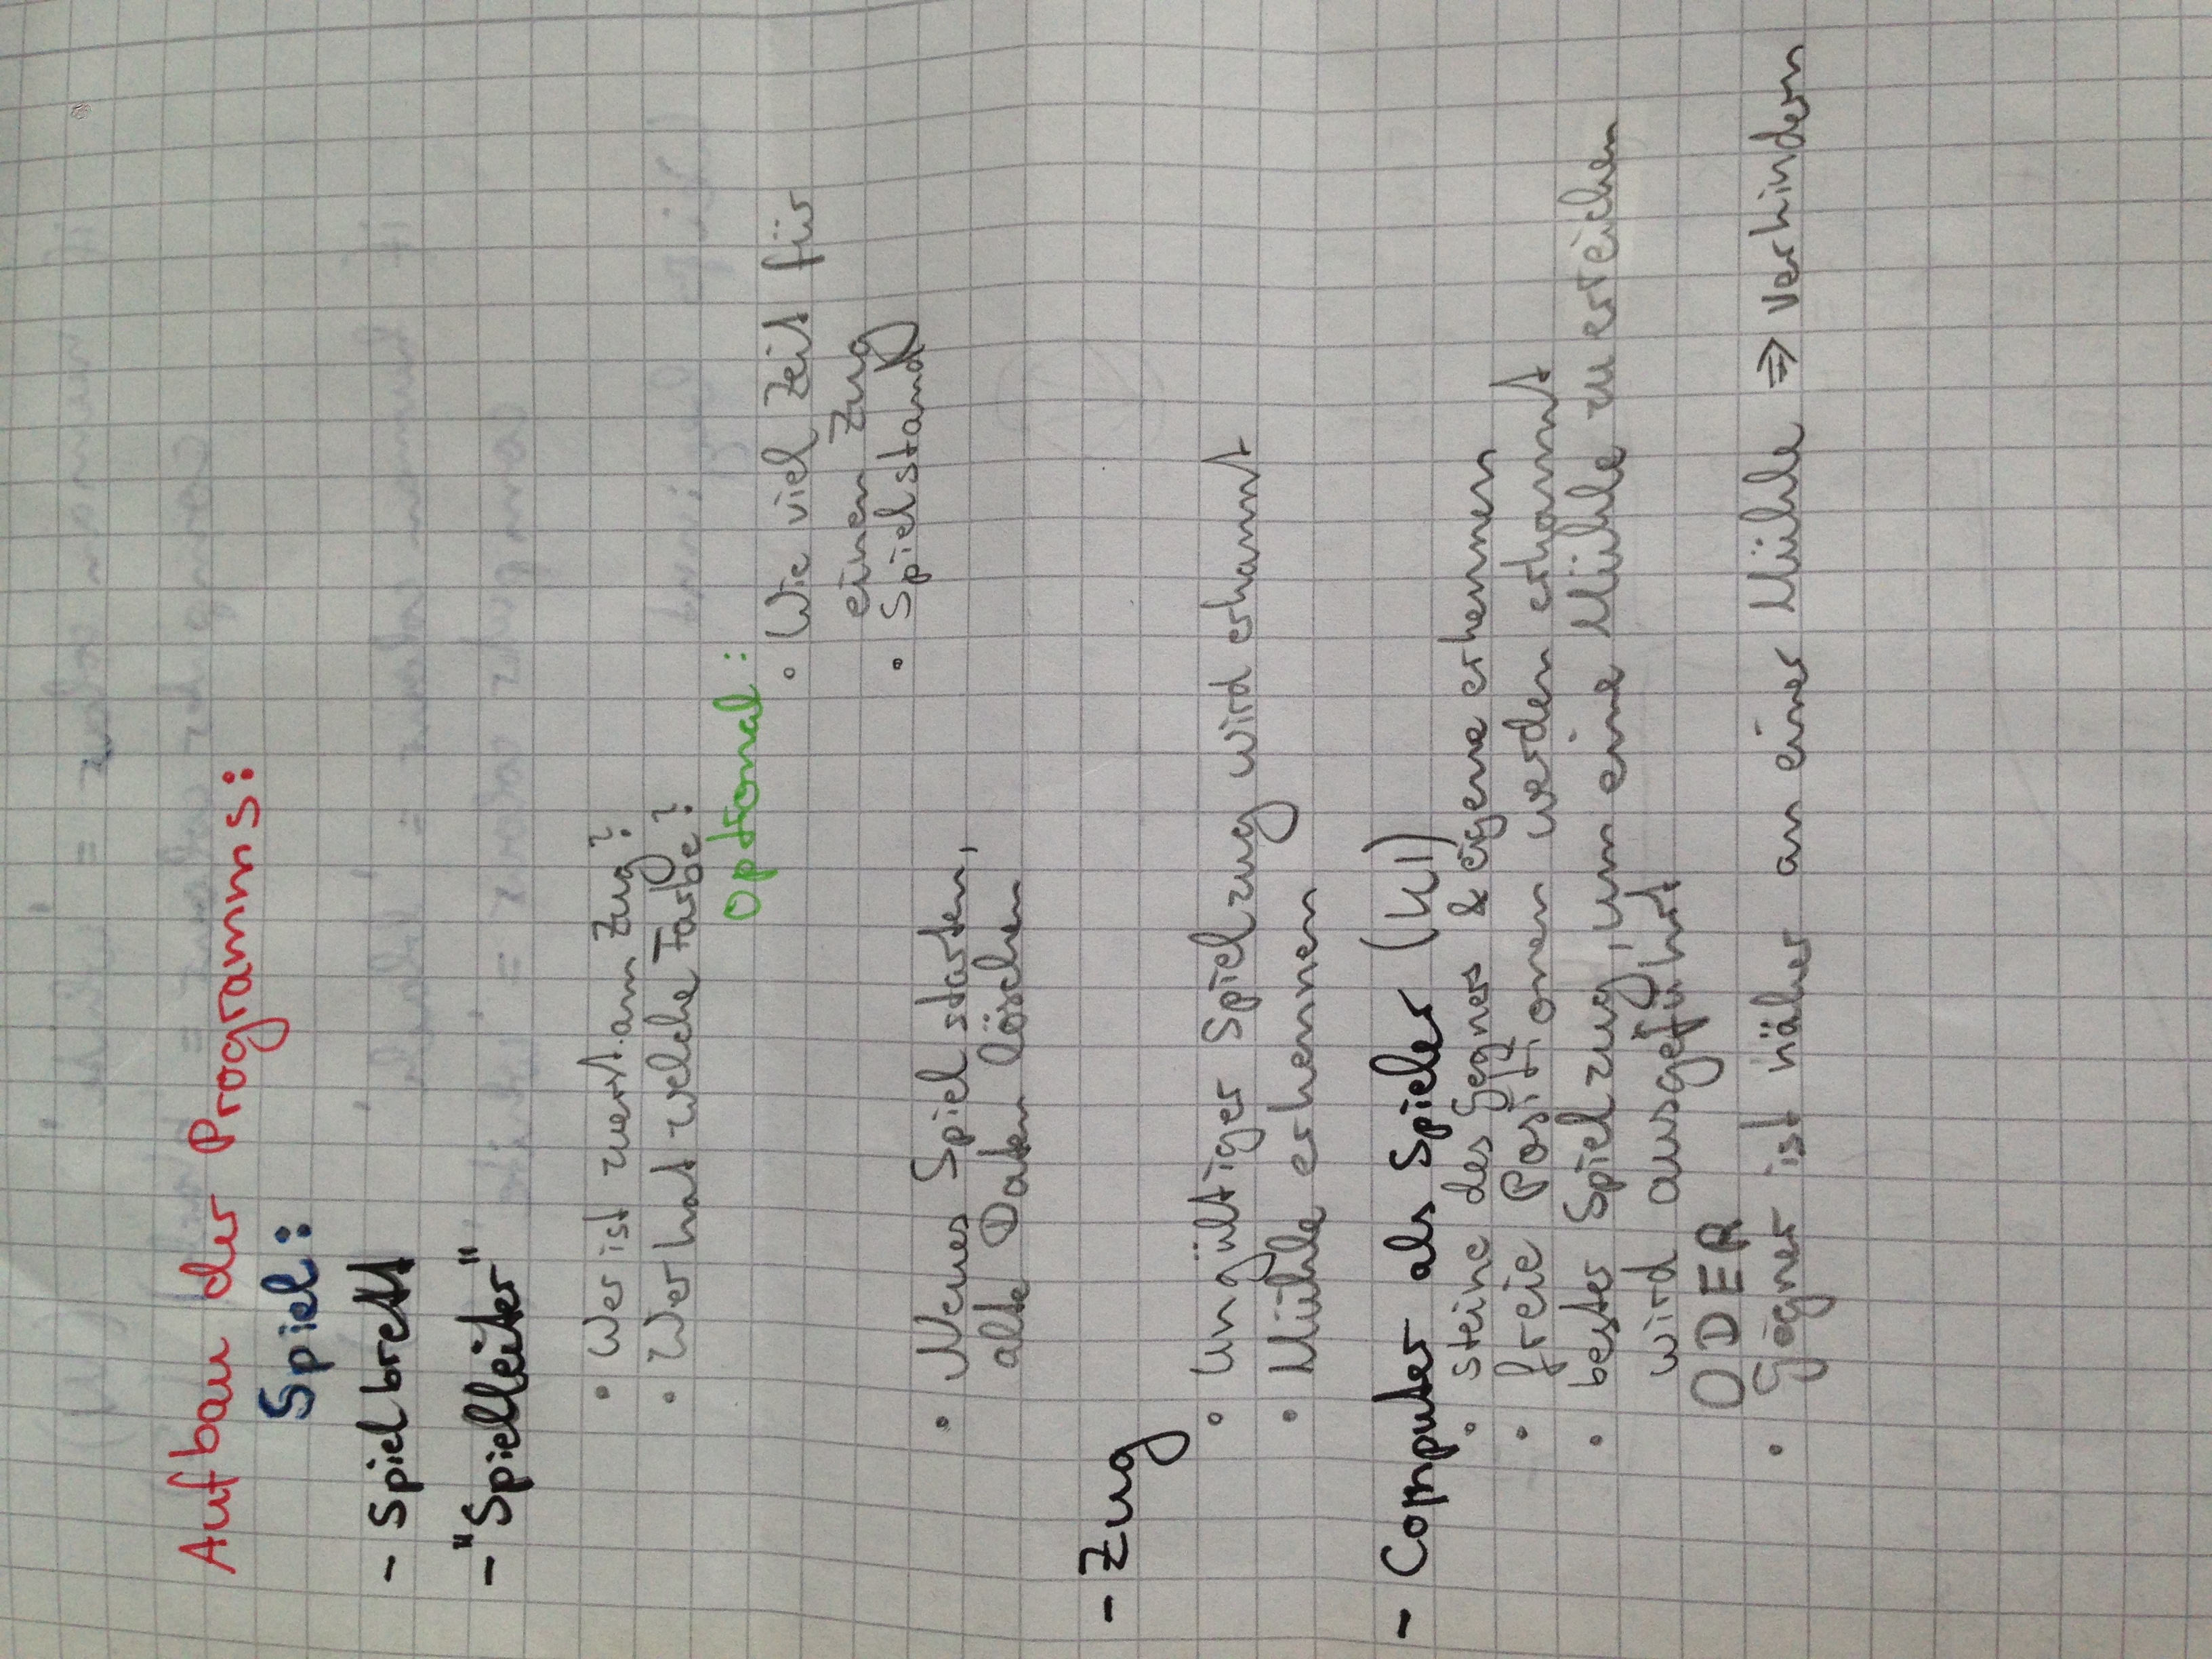 Aufbau der Programms:
Spiel:
- Spielbrett
- "Spielleiter"
• Wer ist zuerst am Zug?
• Wer hat welche Farbe?
Optional:
• Wie viel Zeit für
einen Zug
• Spielstand
• Neues Spiel starten,
alte Daten löschen
- Zug
• Ungültiger Spielzug wird erkannt
• Mühle erkennen
- Computer als Spieler (KI)
• Steine des Gegners & eigene erkennen
• freie Positionen werden erkannt
• bester Spielzug, um eine Mühle zu erreichen
wird ausgeführt
ODER
• Gegner ist näher an einer Mühle => verhindern